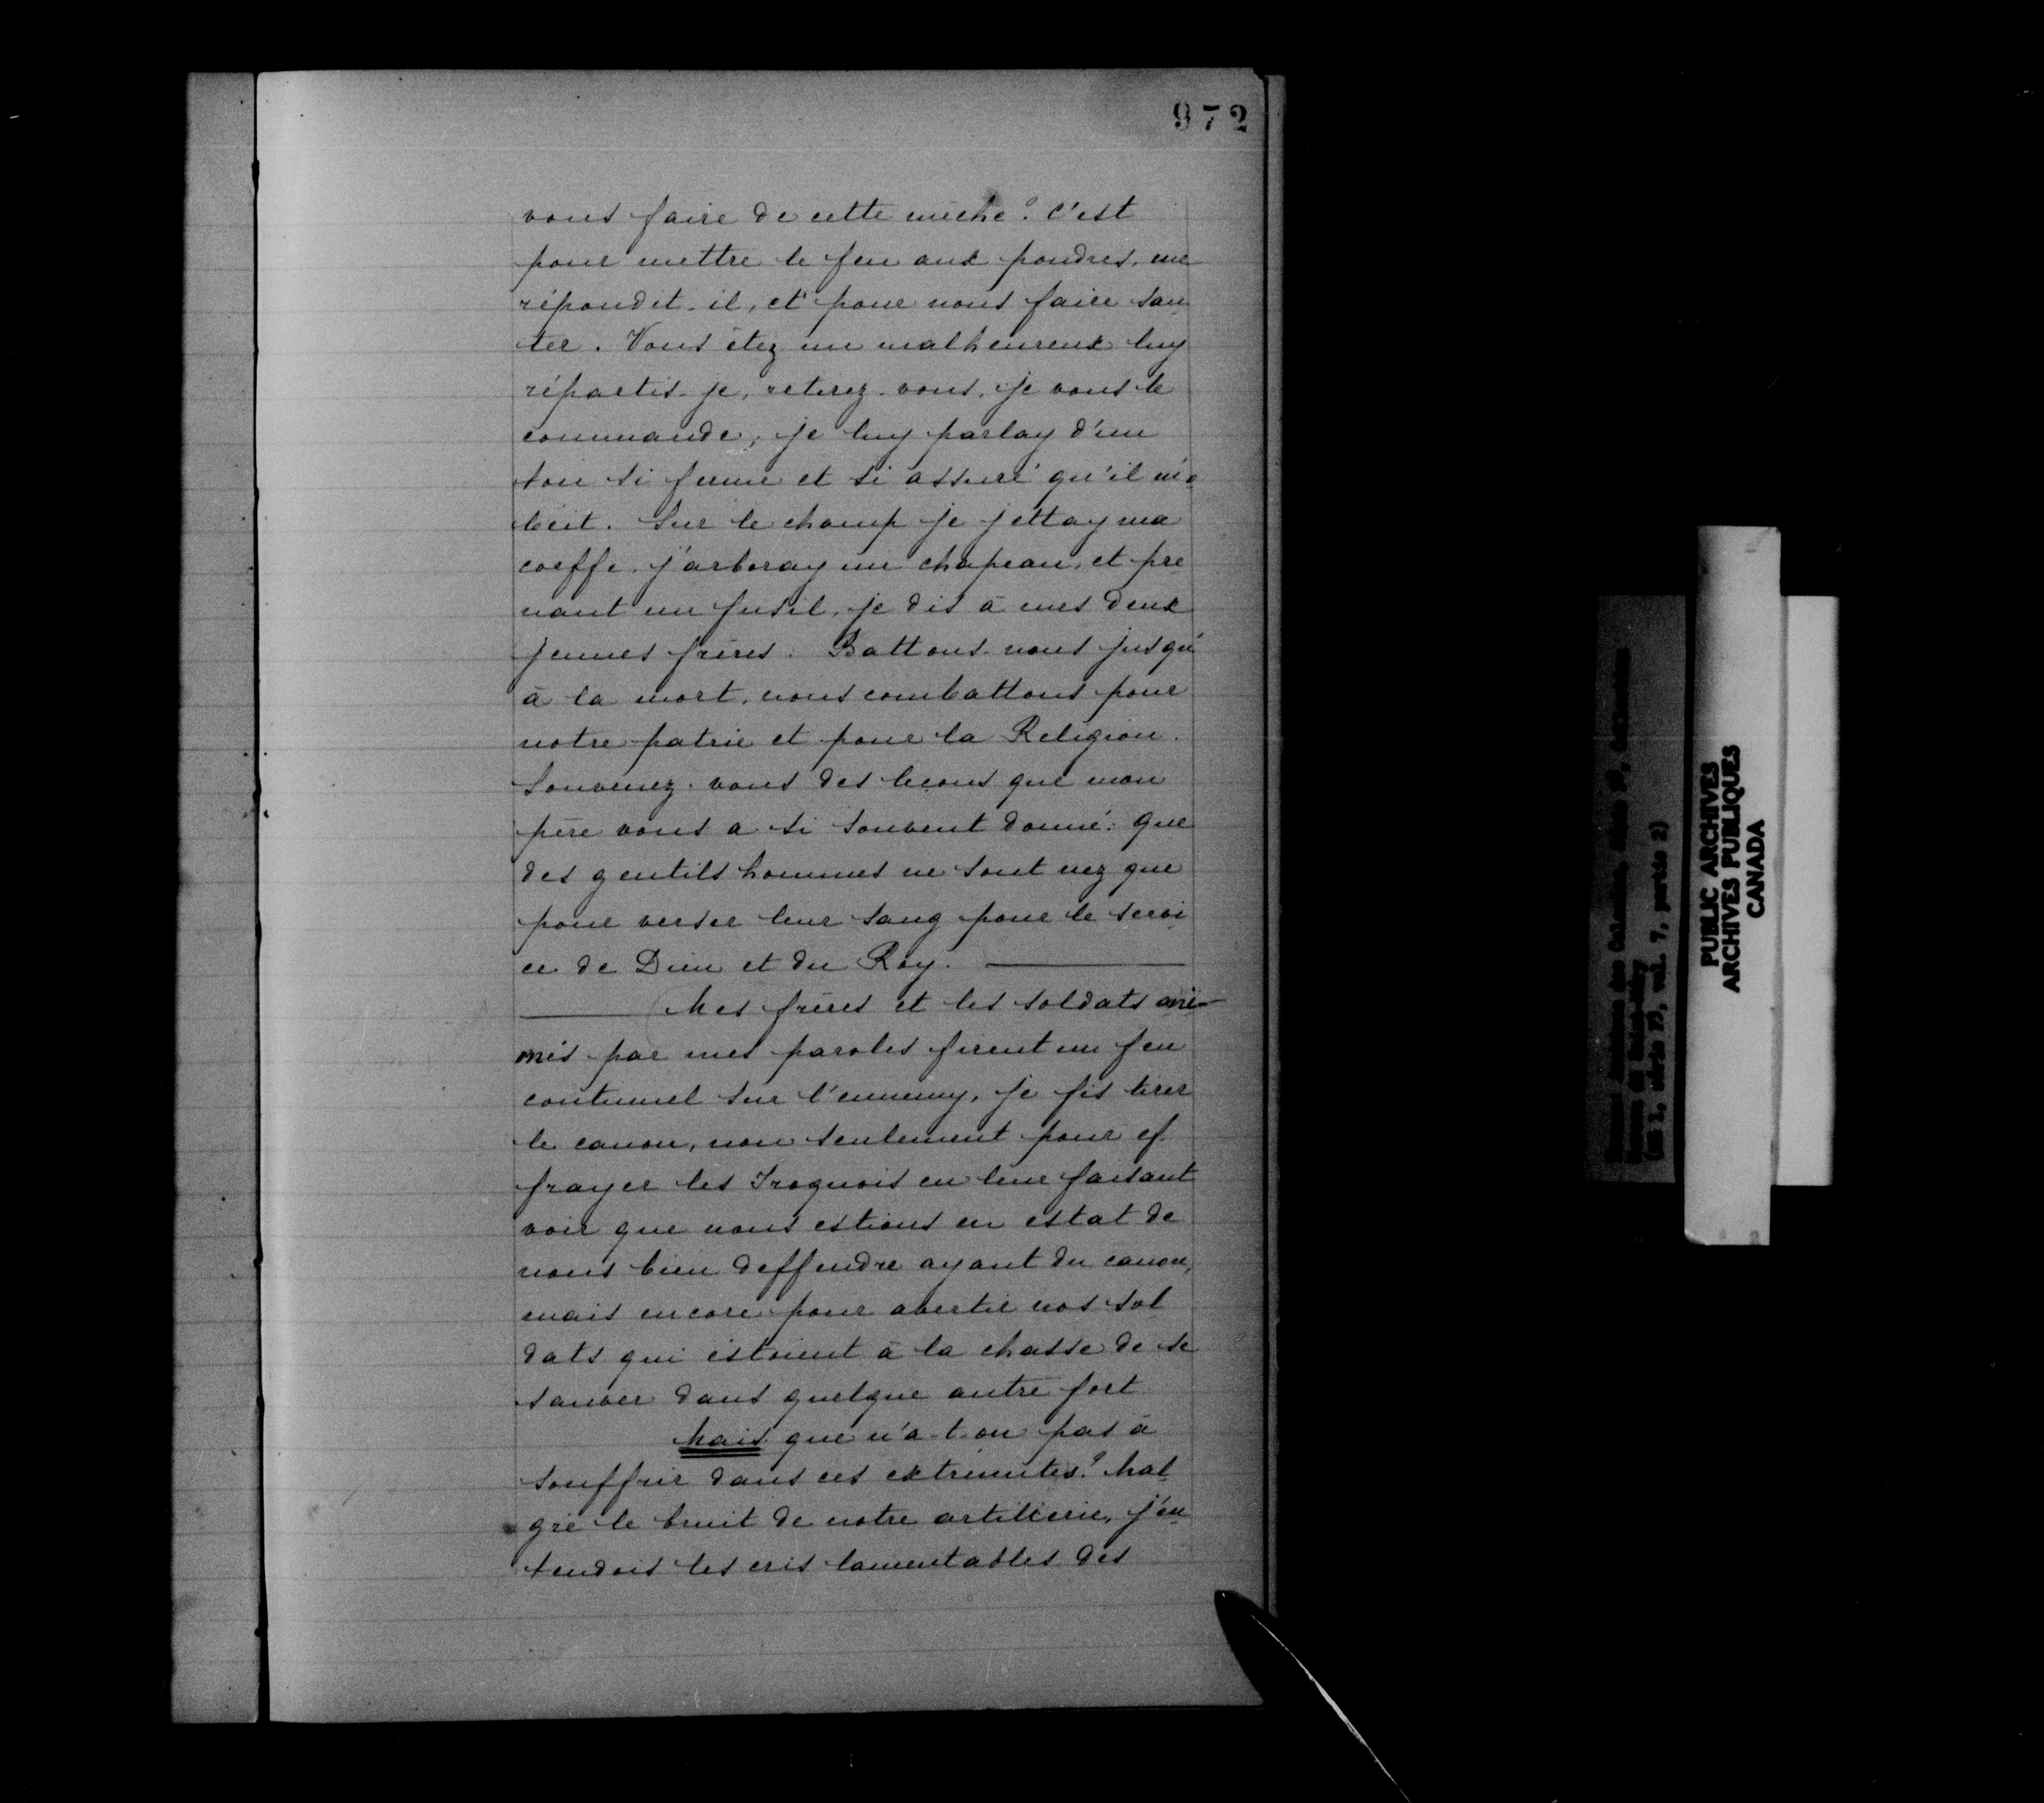 972
vous faire de cette mèche? C'est
pour mettre le feu aux poudres, me
répondit-il, et pour nous faire sau
ter. Vous êtez un malheureux luy
répartis-je, retirez-vous, je vous le
commande, je luy parlay d'un
ton si ferme et si assuré qu'il m'o
béit. Sur le champ je jettay ma
coeffe, j'arboray un chapeau, et pre
nant un fusil, je dis à mes deux
jeunes frères. Battons-nous jusqu'
à la mort, nous combattons pour
notre patrie et pour la Religion.
Souvenez-vous des leçons que mon
père vous a si souvent donné: que
des gentils hommes ne sont nez que
pour verser leur sang pour le servi
ce de Dieu et du Roy.
Mes frères et les soldats ani-
més par mes paroles firent un feu
continuel sur l'ennemy, je fis tirer
le canon, non seulement pour ef
frayer les Iroquois en leur faisant
voir que nous estions en estat de
nous bien deffendre ayant du canon,
mais encore pour avertir nos sol
dats qui estoient à la chasse de se
sauver dans quelque autre fort
Mais que n'a-t-on pas à
souffrir dans ces extrémités? Mal
gré le bruit de notre artillerie, j'en
tendois les cris lamentables des
PUBLIC ARCHIVES
ARCHIVES PUBLIQUES
CANADA
(MG 1, série F3, vol. 7, partie 2)